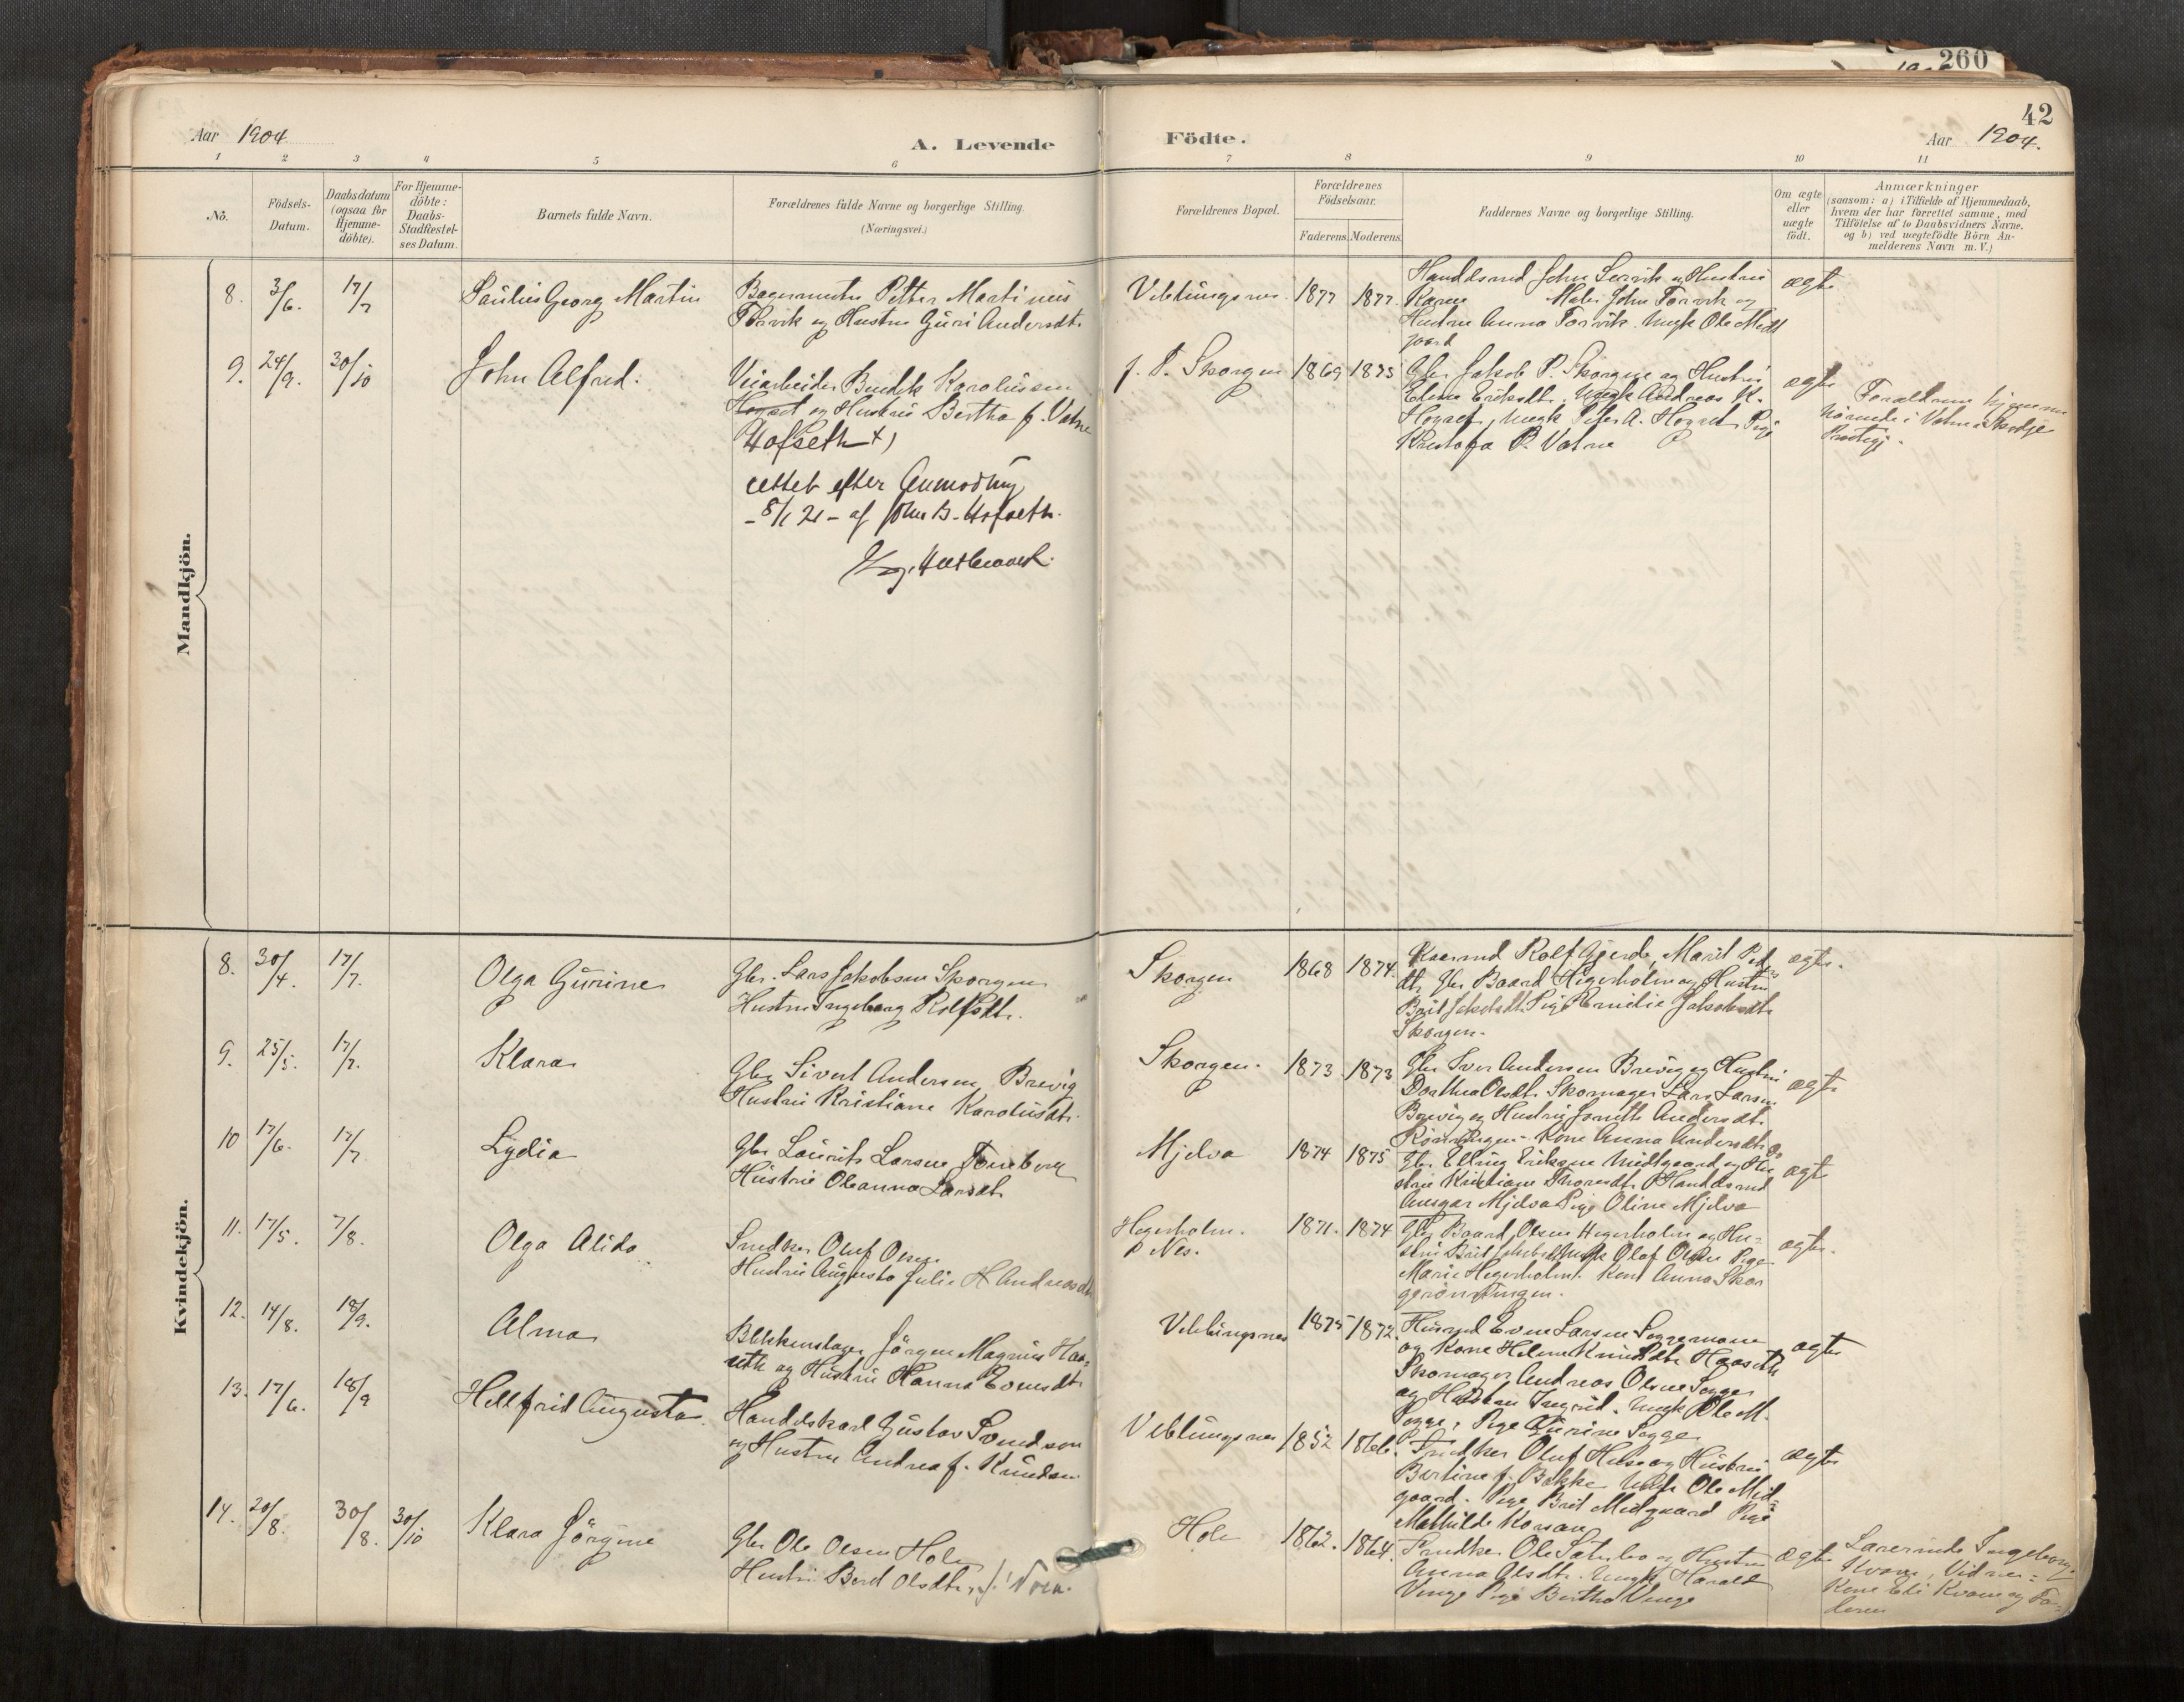 260
42
Aar 1904
A. Levende
Födte.
Aar 1904.
1 2 3 4 5 6 7 8 9 10 11
No.
Födsels-
Datum.
Daabsdatum
(ogsaa for
Hjemme-
döbte).
For Hjemme-
döbte:
Daabs-
Stadfæstel-
ses Datum.
Barnets fulde Navn.
Forældrenes fulde Navne og borgerlige Stilling.
(Næringsvei.)
Forældrenes Bopæl.
Forældrenes
Födselsaar.
Faderens. Moderens.
Faddernes Navne og borgerlige Stilling.
Om ægte
eller
uægte
födt.
Anmærkninger
(saasom: a) i Tilfælde af Hjemmedaab,
hvem der har forrettet samme, med
Tilföielse af to Daabsvidners Navne.
og b) ved uægtefödte Börn An-
melderens Navn m. V.)
Mandkjön.
8. 3/6. 17/7
Georg Martin
Petter Martinus
Torvik og Hustru Guri Andersdt.
Veblungsnes 1877 1877.
John og Hustru
Karen Maler John Torvik og
Hustru Anna Torvik. Ungk Ole Midt
gaard
ægte
9. 24/9. 30/10
John Alfred.
Veiarbeider Bendik Karolussen
og Hustru Bertha f. Vatne
Hofseth +)
rettet efter Anmodning
- 8/1 21 - af John B. Hofseth.
f. P. Skorgen 1869 1875
Gbr Jakob P. Skorgen og Hustru
Eriksdt. Ungk Andreas K.
Ungk Peter A. Pige
P. Vatne
ægte
Forældrene hjemme
hörende i Vatne Skodje
Prestegj.
Kvindekjön.
8. 30/4. 17/7.
Olga Gurine
Gbr. Lars Jakobsen Skorgen
Hustru Ingeborg Rolfsdt.
Skorgen 1868 1874.
Rolf Gjerde, Marit Peders
dt, Gbr Baard Hegerholm og Hustru
Brit Jakobsdt. Pige Emilie Jakobsdt.
Skorgen.
ægte.
9. 25/5. 17/7.
Klara
Gbr Sivert Andersen Brevig
Hustru Kristiane Karolusdt.
Skorgen. 1873. 1873
Gbr Iver Andersen Brevig og Hustru
Dorthea Olsdt. Skomager Lars Larsen
Brevig og Hustru Andersdt.
Kone Anna Andersdt. do
ægte
10 17/6. 17/7
Lydia
Gbr Laurits Larsen
Hustru Oleanna Larsdt.
Mjelva 1874 1875
Gbr Elling Eriksen Midtgaard og Hu
stru Kristiane Handelsmd
Ansgar Mjelva Pige Oline Mjelva
ægte
11. 17/5. 7/8.
Olga Alida
Snedker Oluf Olsen
Hustru Augusta Julie H Andreasdt
Hegerholm.
p Nes. 1871. 1874
Gbr Baard Olsen Hegerholm og Hu-
stru Brit Jakobsdt Ungk Olaf Olsen Pige
Marie Hegerholm. Kone Anna Skor
ægte.
12. 14/8. 18/9.
Alma
Blikkenslager Jörgen Magnus Haa-
seth og Hustru Hanna Evensdt
Veblungsnes 1875 1872.
Husmd Even Larsen
og Kone Helene Knudsdt. Haaseth
Skomager Andreas Olsen Sogge
og Hustru Ingrid. Ungk Ole M.
Sogge, Pige Gurine Sogge
ægte
13. 17/6. 18/9
Augusta.
Handelskarl Gustav Svendsen
og Hustru Andrea f. Knudsen
Veblungsnes 1852 1866.
Snedker Oluf og Hustru
Bertine f. Bakke Ungk Ole Mid-
gaard. Pige Brit Midgaard Pige
Mathilde
ægte
14. 20/8. 30/8. 30/10
Klara Jörgine
Gbr Ole Olsen Hole
Hustru Berit Olsdt.
Hole 1862. 1864.
Snedker Ole og Hustru
Anna Olsdt. Ungk Harald
Venge Pige Bertha Venge
ægte
Lærerinde Ingeborg
Kvam, Vidner:
Kone Eli Kvam og Fa-
deren